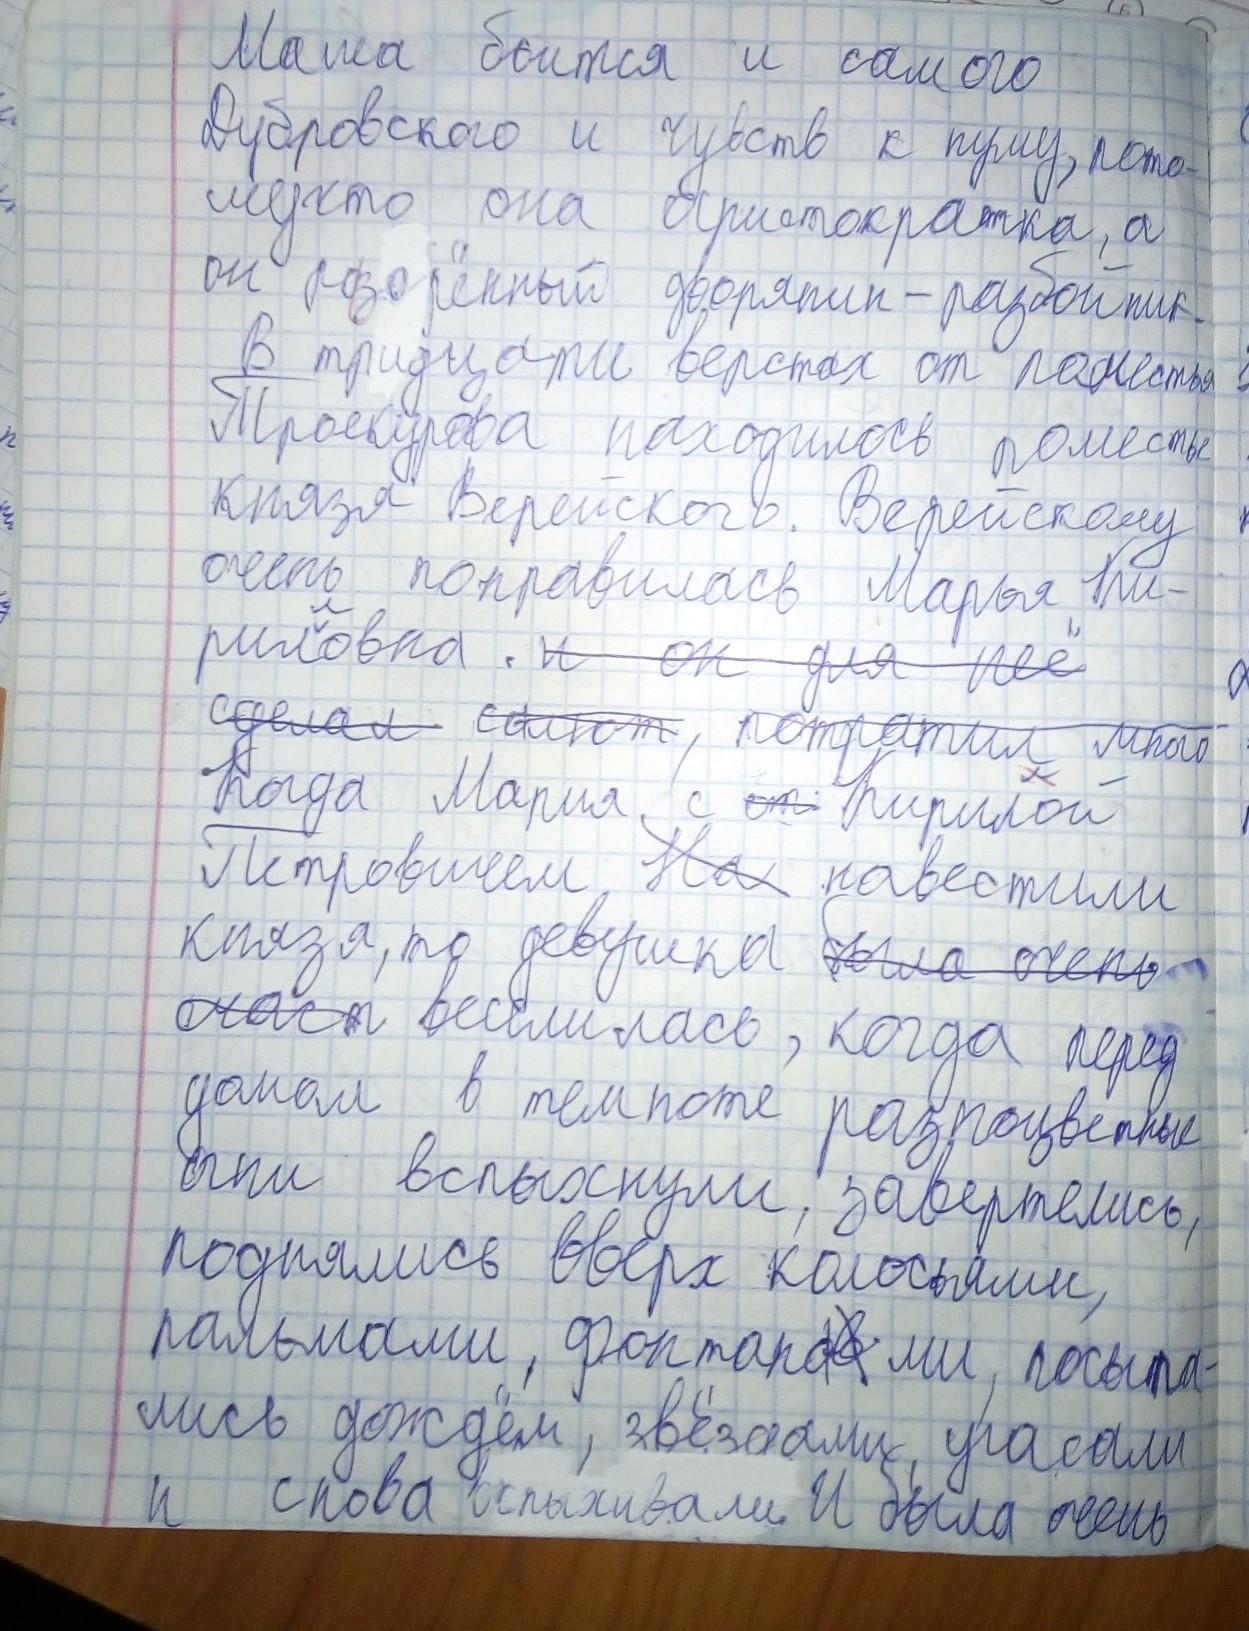 Маша боится и самого
Дубровского и чувств к нему, пото-
мучто она аристократка, а
он розорённый дворянин-разбойник.
В тридцати верстах от поместья
Троекурова находилось поместье
князя Верейского. Верейскому
очень понравилась Марья Ки-
риловна. и он для неё
сделал салют, потратил много
Когда Мария с от Кирилой
Петровичем На навестили
князя, то девушка была очень
счаст веселилась, когда перед
домом в темноте разноцветные
огни вспыхнули, завертелись,
поднялись вверх колосьями,
пальмами, фонтанами, посыпа-
лись дождём, звёздами, угасали
и снова вспыхивали. И была очень